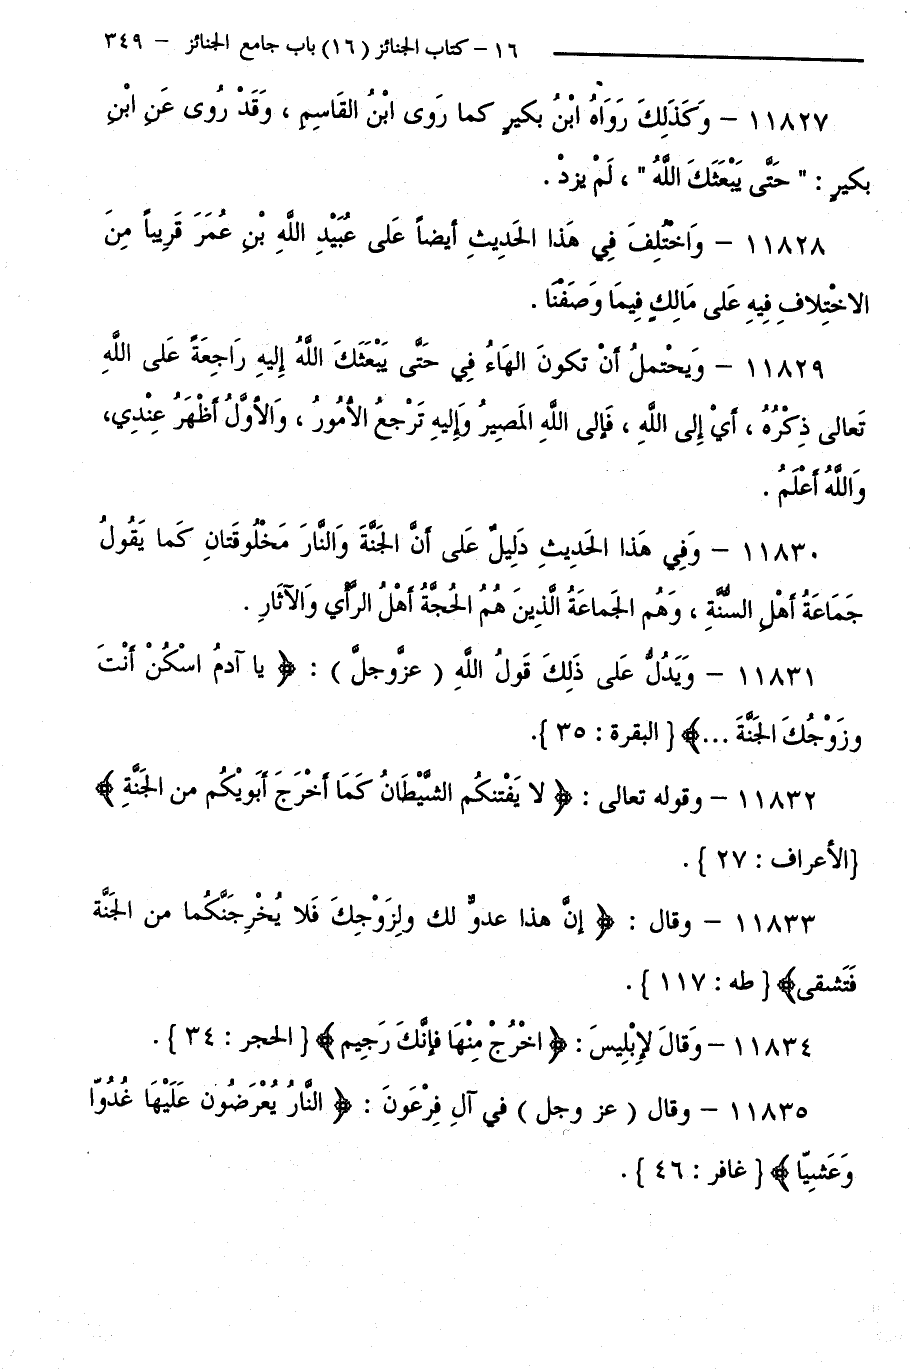 ١٦ – كتاب الجنائز (١٦) باب جامع الجنائز – ٣٤٩
١١٨٢٧ – وَكَذَلِكَ رَوَاهُ ابْنُ بكيرٍ كما رَوى ابْنُ القَاسِمِ ، وَقَدْ رُوى عَنِ ابْنِ
بكيرٍ : " حَتَّى يَبْعَثَكَ اللَّهُ " ، لَمْ يزدْ .
١١٨٢٨ – وَاخْتُلِفَ فِي هَذَا الحَديثِ أيضاً عَلى عُبَيْدِ اللَّهِ بْنِ عُمَرَ قَرِيباً مِنَ
الاخْتِلافِ فِيهِ عَلى مَالِكٍ فِيمَا وَصَفْنَا .
١١٨٢٩ – وَيَحْتملُ أَنْ تكونَ الهَاءُ فِي حَتَّى يَبْعَثَكَ اللَّهُ إِليهِ رَاجِعَةً عَلى اللَّهِ
تَعالى ذِكْرُهُ ، أَيْ إِلى اللَّهِ ، فَإِلى اللَّهِ المَصِيرُ وَإِليهِ تَرْجعُ الأُمُورُ ، وَالأوَّلُ أَظْهَرُ عِنْدِي،
وَاللَّهُ أَعْلَمُ .
١١٨٣٠ – وَفِي هَذا الحَديثِ دَلِيلٌ عَلى أَنَّ الجَنَّةَ وَالنَّارَ مَخْلُوقَتَانِ كَما يَقُولُ
جَمَاعَةُ أَهْلِ السُّنَّةِ ، وَهُم الجَماعَةُ الَّذِينَ هُمُ الحُجَّةُ أَهْلُ الرَّأْي وَالآثَارِ .
١١٨٣١ – وَيَدُلُّ عَلى ذَلِكَ قَولُ اللَّهِ ( عزَّوجلَّ ) : ﴿ يا آدمُ اسْكُنْ أَنْتَ
وزَوْجُكَ الجَنَّةَ ...﴾ [ البقرة : ٣٥ ].
١١٨٣٢ – وقوله تعالى : ﴿ لا يَفْتنكُم الشَّيْطَانُ كَمَا أَخْرَجَ أَبَويْكُم من الجَنَّةِ ﴾
[الأعراف : ٢٧ ] .
١١٨٣٣ – وقال : ﴿ إِنَّ هذا عدوٌّ لك ولِزَوْجِكَ فَلا يُخْرِجَنَّكُما من الجَنَّة
فَتَشقى﴾ [ طه : ١١٧ ] .
١١٨٣٤ – وَقَالَ لإِبْلِيسَ : ﴿ اخْرُجْ مِنْهَا فإِنَّكَ رَجِيم ﴾ [ الحجر : ٣٤ ] .
١١٨٣٥ – وقال ( عز وجل ) في آلِ فِرْعَونَ : ﴿ النَّارُ يُعْرَضُون عَلَيْهَا غُدُوّا
وَعَشيّا ﴾ [ غافر : ٤٦ ] .